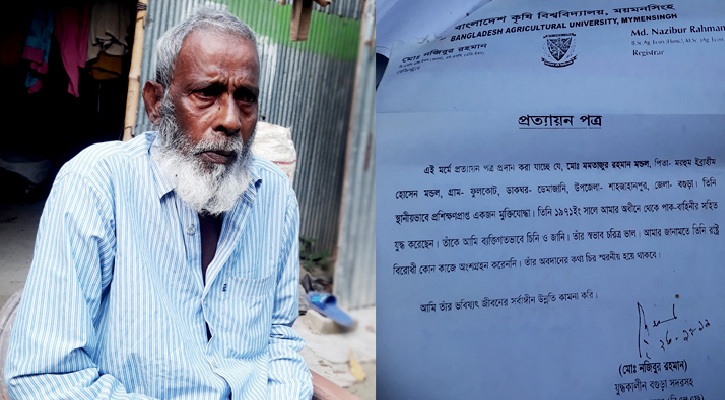 বাংলাদেশ কৃষি বিশ্ববিদ্যালয়, ময়মনসিংহ
BANGLADESH AGRICULTURAL UNIVERSITY, MYMENSINGH
মোঃ নজিবুর রহমান
Md. Nazibur Rahman
Registrar
প্রত্যায়ন পত্র
এই মর্মে প্রত্যায়ন পত্র প্রদান করা যাচ্ছে যে, মোঃ মমতাজুর রহমান মন্ডল, পিতা- মরহুম ইব্রাহীম
হোসেন মন্ডল, গ্রাম- ফুলকোট, ডাকঘর- ডেমাজানি, উপজেলা- শাহজাহানপুর, জেলা- বগুড়া। তিনি
স্থানীয়ভাবে প্রশিক্ষণপ্রাপ্ত একজন মুক্তিযোদ্ধা। তিনি ১৯৭১ইং সালে আমার অধীনে থেকে পাক-বাহিনীর সহিত
যুদ্ধ করেছেন। তাঁকে আমি ব্যক্তিগতভাবে চিনি ও জানি। তাঁর স্বভাব চরিত্র ভাল। আমার জানামতে তিনি রাষ্ট্র
বিরোধী কোনা কাজে অংশগ্রহন করেননি। তাঁর অবদানের কথা চির স্মরনীয় হয়ে থাকবে।
আমি তাঁর ভবিষ্যৎ জীবনের সর্বাঙ্গীন উন্নতি কামনা করি।
(মোঃ নজিবুর রহমান)
যুদ্ধকালীন বগুড়া সদরসহ